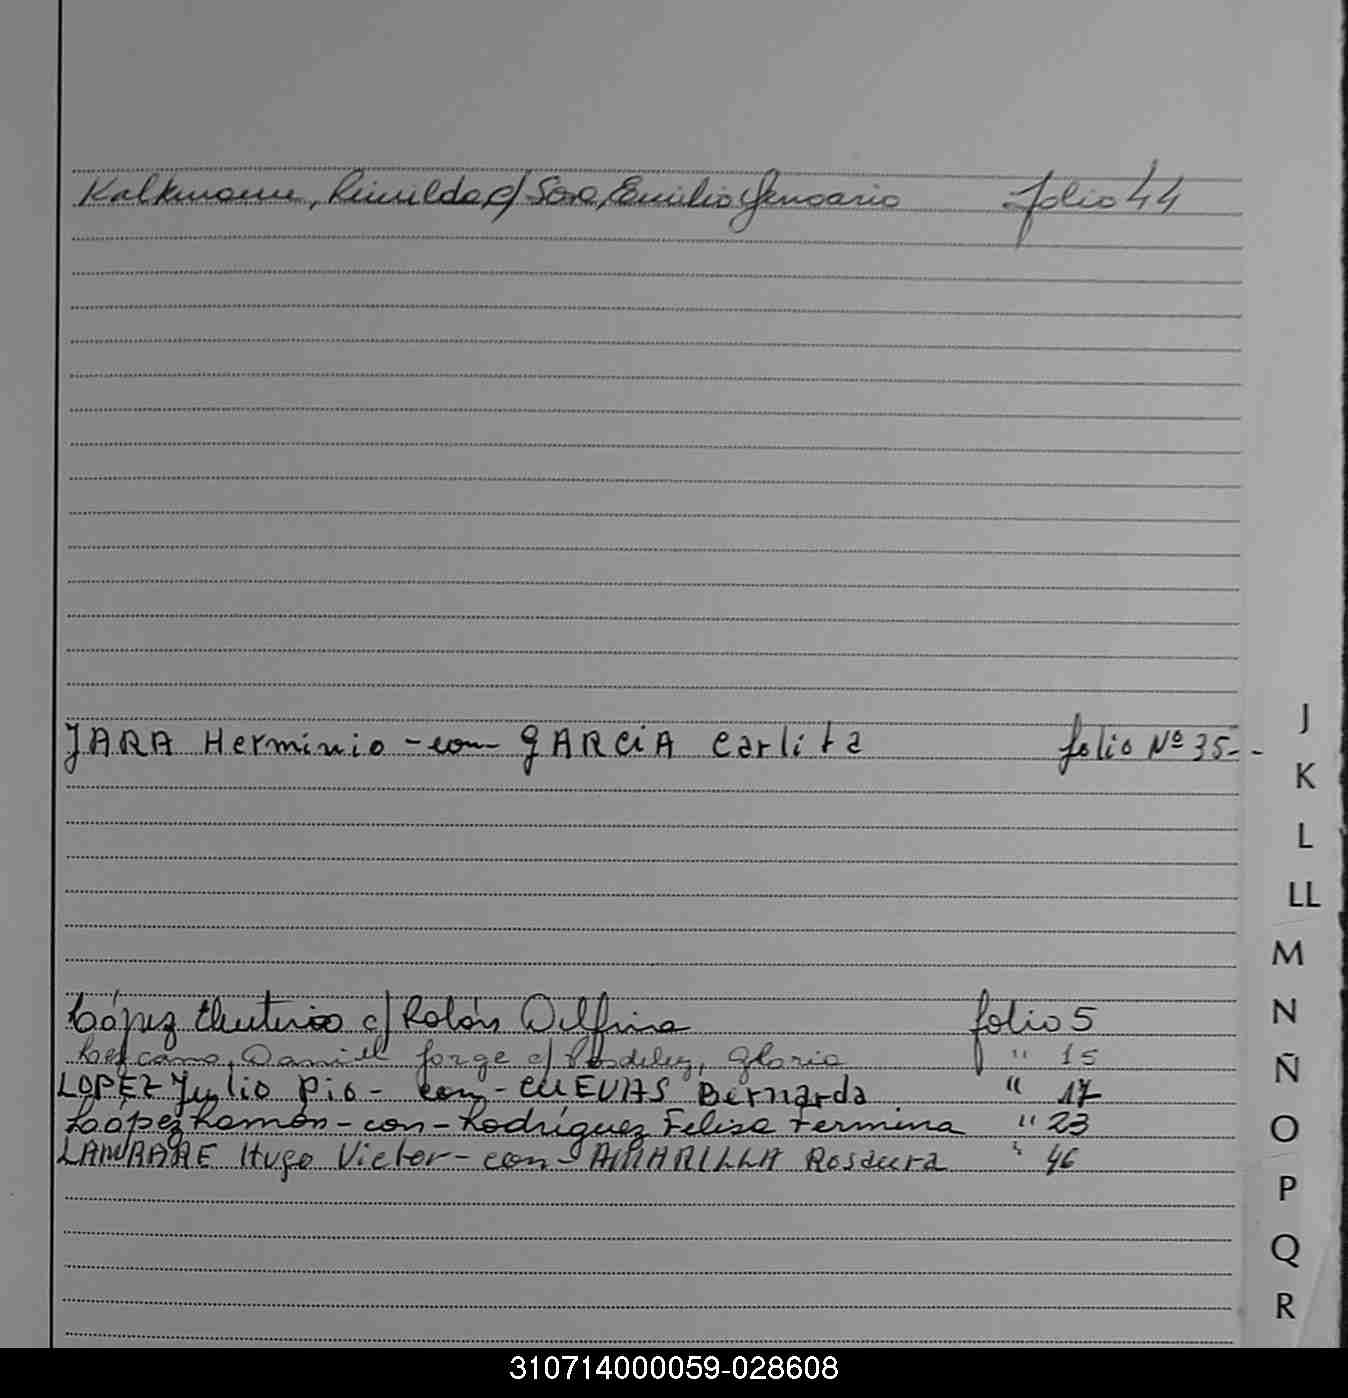 Kalkmann, Rimilda c/ Sosa, Emilio Genoario folio 44
JARA Herminio - con - GARCIA Carlita folio Nº 35--
López Eleuterio c/ Rolón Delfina folio 5
Lezcano, Daniel Jorge c/ Gloria " 15
LOPEZ Julio Pio - con - CUEVAS Bernarda " 17
López Ramón - con - Rodríguez Felisa Fermina " 23
Hugo Victor - con - AMARILLA Rosaura " 46
J
K
L
LL
M
N
Ñ
O
P
Q
R
310714000059-028608